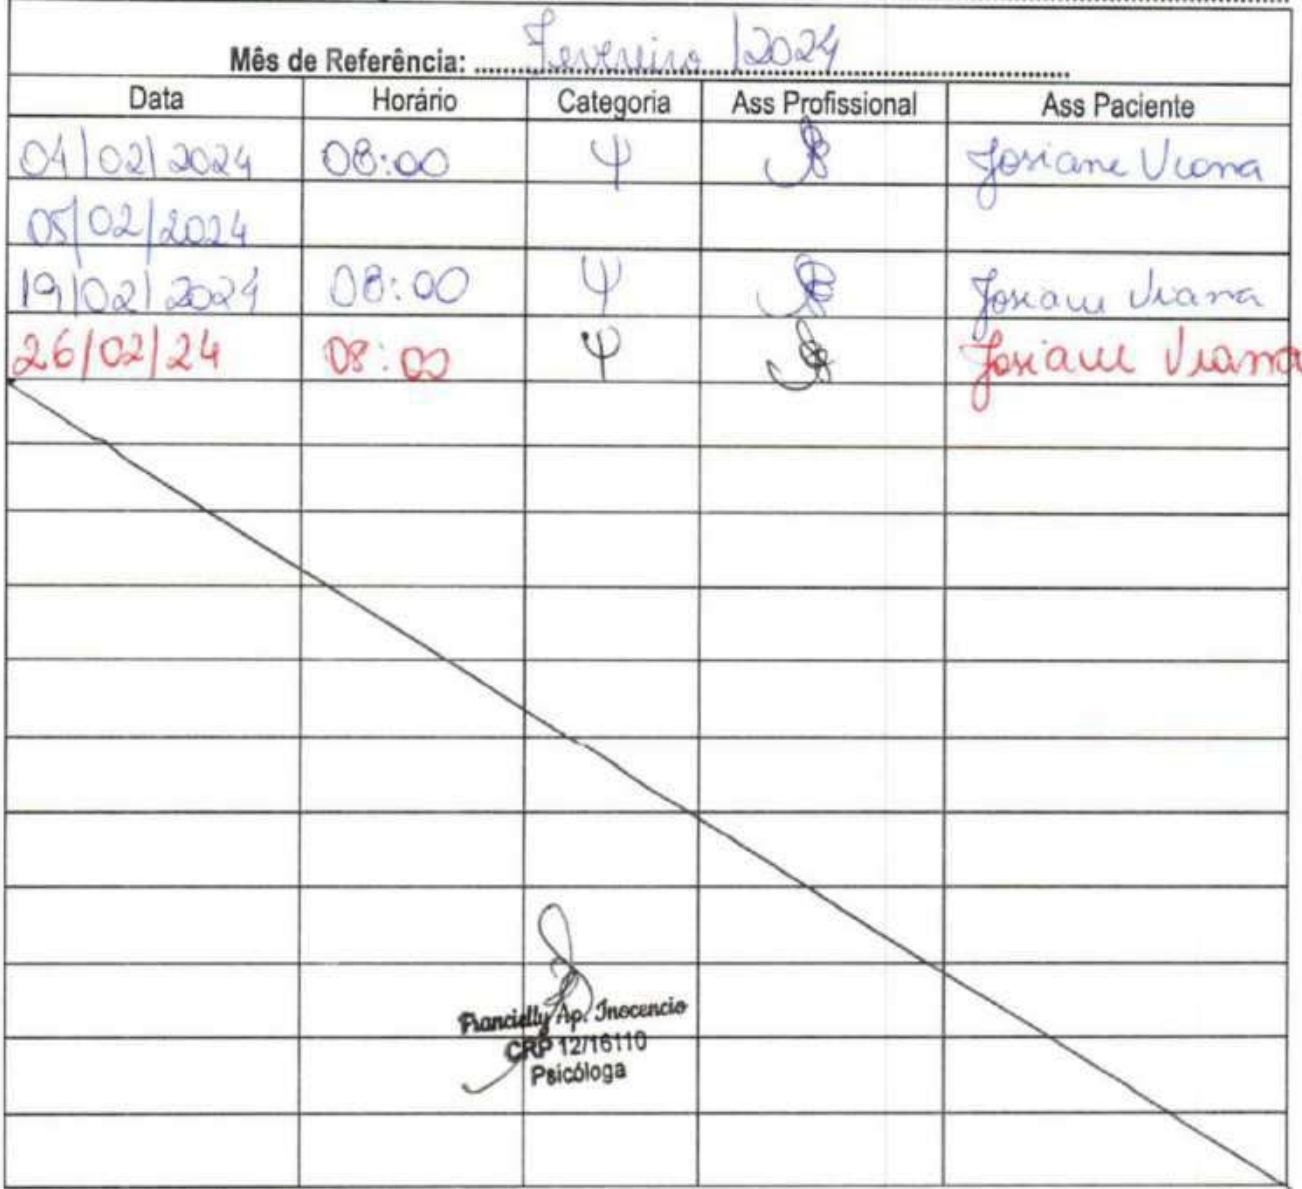 Mês de Referência: Fevereiro /2024
Data Horário Categoria Ass Profissional Ass Paciente
04/02/2024 08:00 Ψ Josiane Viana
05/02/2024
19/02/2024 08:00 Ψ Josiane Viana
26/02/24 08:00 Ψ Josiane Viana
Francielly Ap. Inocencio
CRP 12/16110
Psicóloga